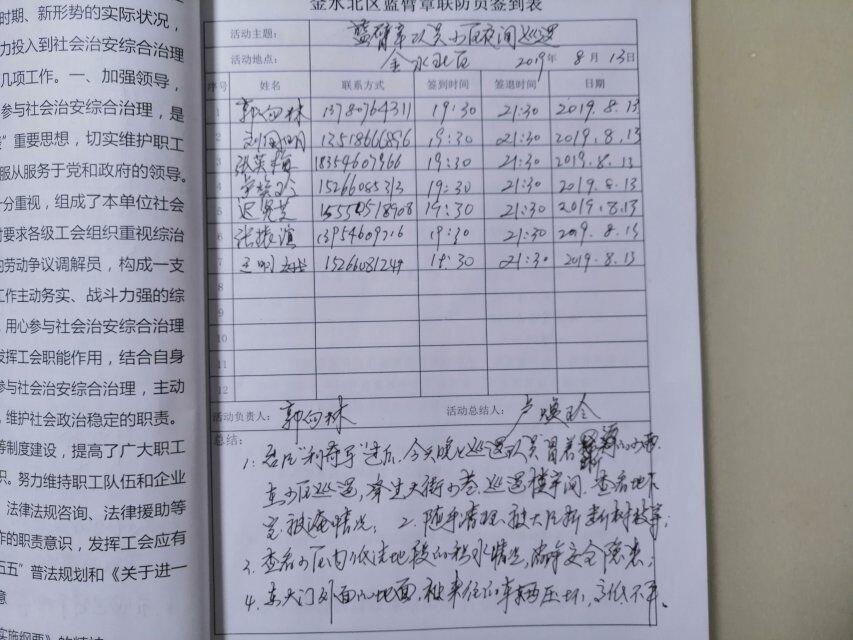 时期、新形势的实际状况，
力投入到社会治安综合治理
几项工作。一、加强领导，
参与社会治安综合治理，是
”重要思想，切实维护职工
服从服务于党和政府的领导。
十分重视，组成了本单位社会
时要求各级工会组织重视综治
的劳动争议调解员，构成一支
工作主动务实、战斗力强的综
，用心参与社会治安综合治理
发挥工会职能作用，结合自身
参与社会治安综合治理，主动
，维护社会政治稳定的职责。
等制度建设，提高了广大职工
识。努力维持职工队伍和企业
法律法规咨询、法律援助等
作的职责意识，发挥工会应有
五五”普法规划和《关于进一
意
实施纲要》的精神
金水北区蓝臂章联防员签到表
活动主题： 蓝臂章队员小区夜间巡逻
活动地点： 金水北区 2019年 8月 13日
序号 姓名 联系方式 签到时间 签退时间 日期
1 郭向林 13780764311 19:30 21:30 2019.8.13
2 刘国明 13518666896 19:30 21:30 2019.8.13
3 张英梅 18354607966 19:30 21:30 2019.8.13
4 15266085313 19:30 21:30 2019.8.13
5 迟贤芝 15550518908 19:30 21:30 2019.8.13
6 张振滨 13954609716 19:30 21:30 2019.8.13
7 王明 15266081249 19:30 21:30 2019.8.13
8
9
10
11
12
活动负责人： 郭向林 活动总结人： 卢焕玲
总结：
1、台风“利奇马”过后，今天晚上巡逻队员冒着的小雨
在小区巡逻，穿过大街小巷，巡逻楼宇间，查看地下
室被淹情况；2、随手清理被大风折断树枝等；
3、查看小区内低洼地段的积水情况，排除安全隐患；
4、东大门外面的地面，被来往的车辆压坏，高低不平、